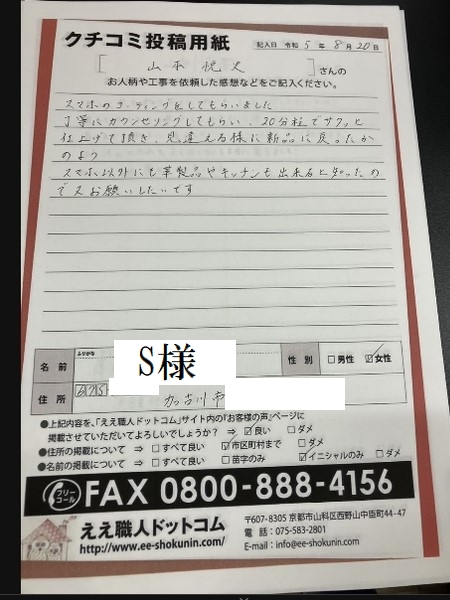 クチコミ投稿用紙
記入日 令和 5 年 8 月 20 日
[ 山本 悦丈 ] さんの
お人柄や工事を依頼した感想などをご記入ください。
スマホのコーティングをしてもらいました
丁寧にカウンセリングしてもらい、20分程でサクッと
仕上げて頂き、見違える様に新品に戻ったか
のよう
スマホ以外にも革製品やキッチンも出来ると知ったの
で又お願いしたいです
ふりがな
名 前 S様 性 別 □男性 ☑女性
住 所 加古川市
●上記内容を、「ええ職人ドットコム」サイト内の『お客様の声』ページに
掲載させていただいてよろしいでしょうか? ⇒ ☑良い □ダメ
●住所の掲載について ⇒ □すべて良い ☑市区町村まで □ダメ
●名前の掲載について ⇒ □すべて良い □苗字のみ ☑イニシャルのみ □ダメ
フリーコール FAX 0800-888-4156
ええ職人ドットコム
http://www.ee-shokunin.com/
〒607-8305 京都市山科区西野山中臣町44-47
電 話:075-583-2801
E-mail:info@ee-shokunin.com